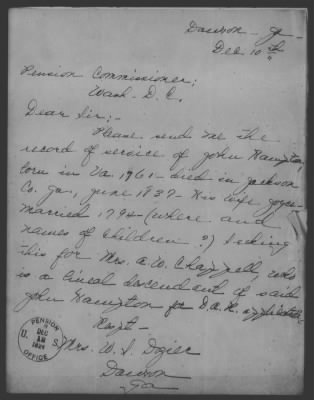 Dawson - Ga -
Dec 10th
Pension Commissioner;
Wash - D. C.
Dear Sir;-
Please send me the
record of service of John Hampton,
born in Va. 1761 - died in Jackson
Co. Ga., June 1837 - His wife Joyce
married 1794 - (where and
names of children?) Seeking
this for Mrs. A. W. Chappell, who
is a lineal descendent of said
John Hampton for D.A.R.
Respt -
Mrs. W. S. Dozier
Dawson
Ga
PENSION
U. S.
DEC
OFFICE